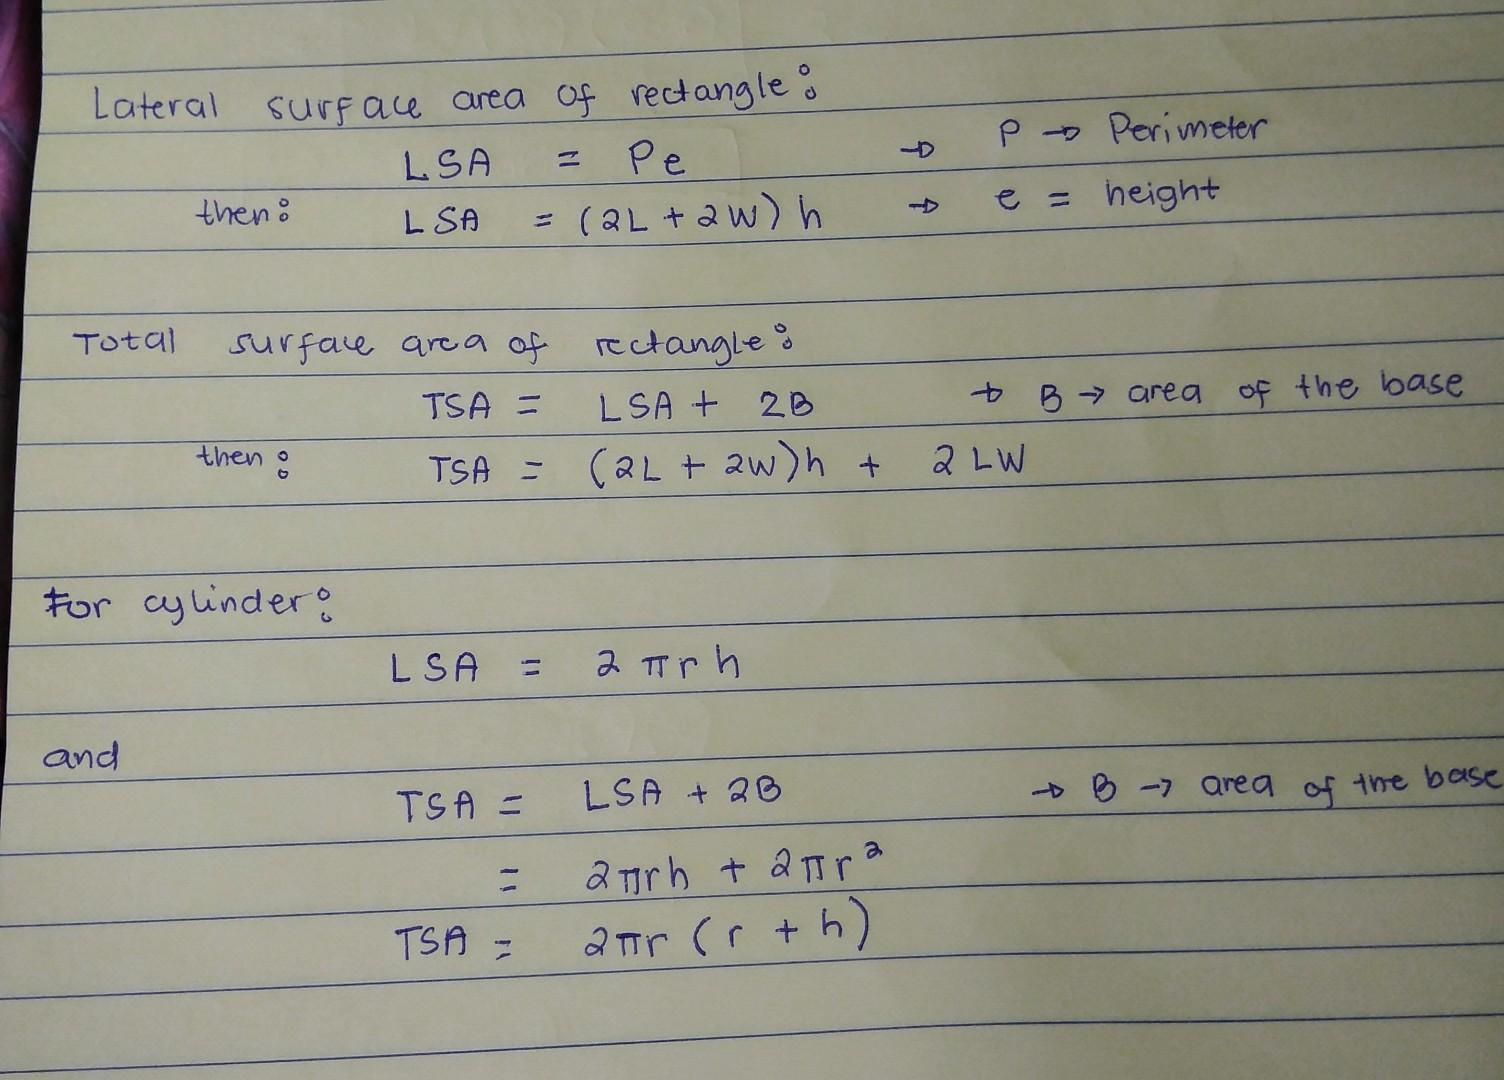 Lateral surface area of rectangle:
LSA = Pe → P → Perimeter
then: LSA = (2L + 2W) h → e = height
Total surface area of rectangle:
TSA = LSA + 2B → B → area of the base
then: TSA = (2L + 2W)h + 2LW
For cylinder:
LSA = 2πrh
and
TSA = LSA + 2B → B → area of the base
= 2πrh + 2πr²
TSA = 2πr (r + h)